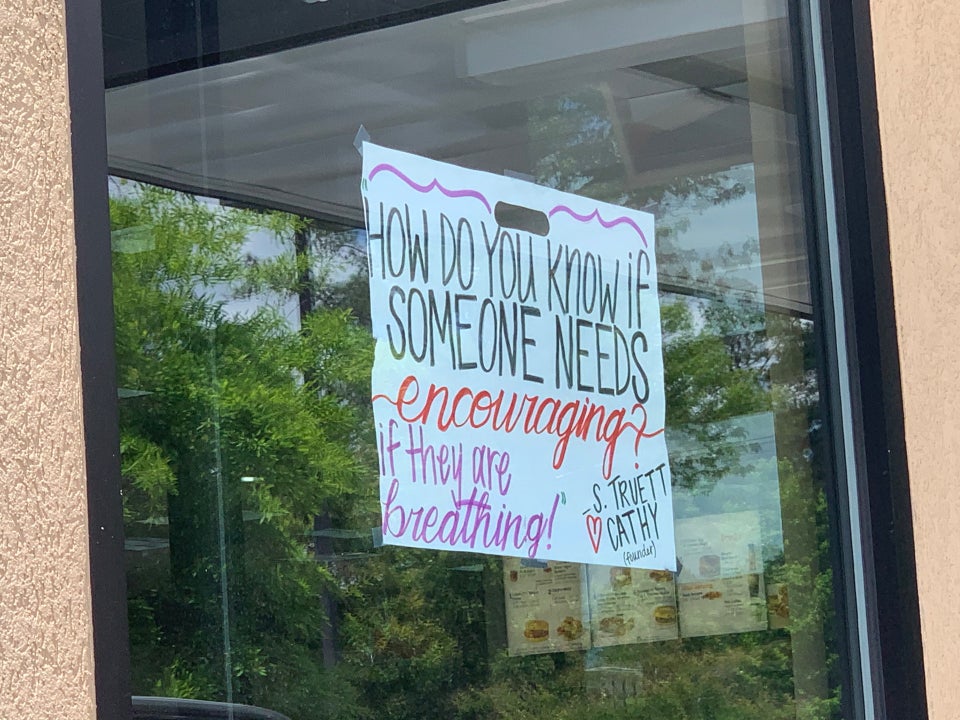 "HOW DO YOU KNOW if
SOMEONE NEEDS
encouraging?
if they are
breathing!"
- S. TRUETT
CATHY
(founder)